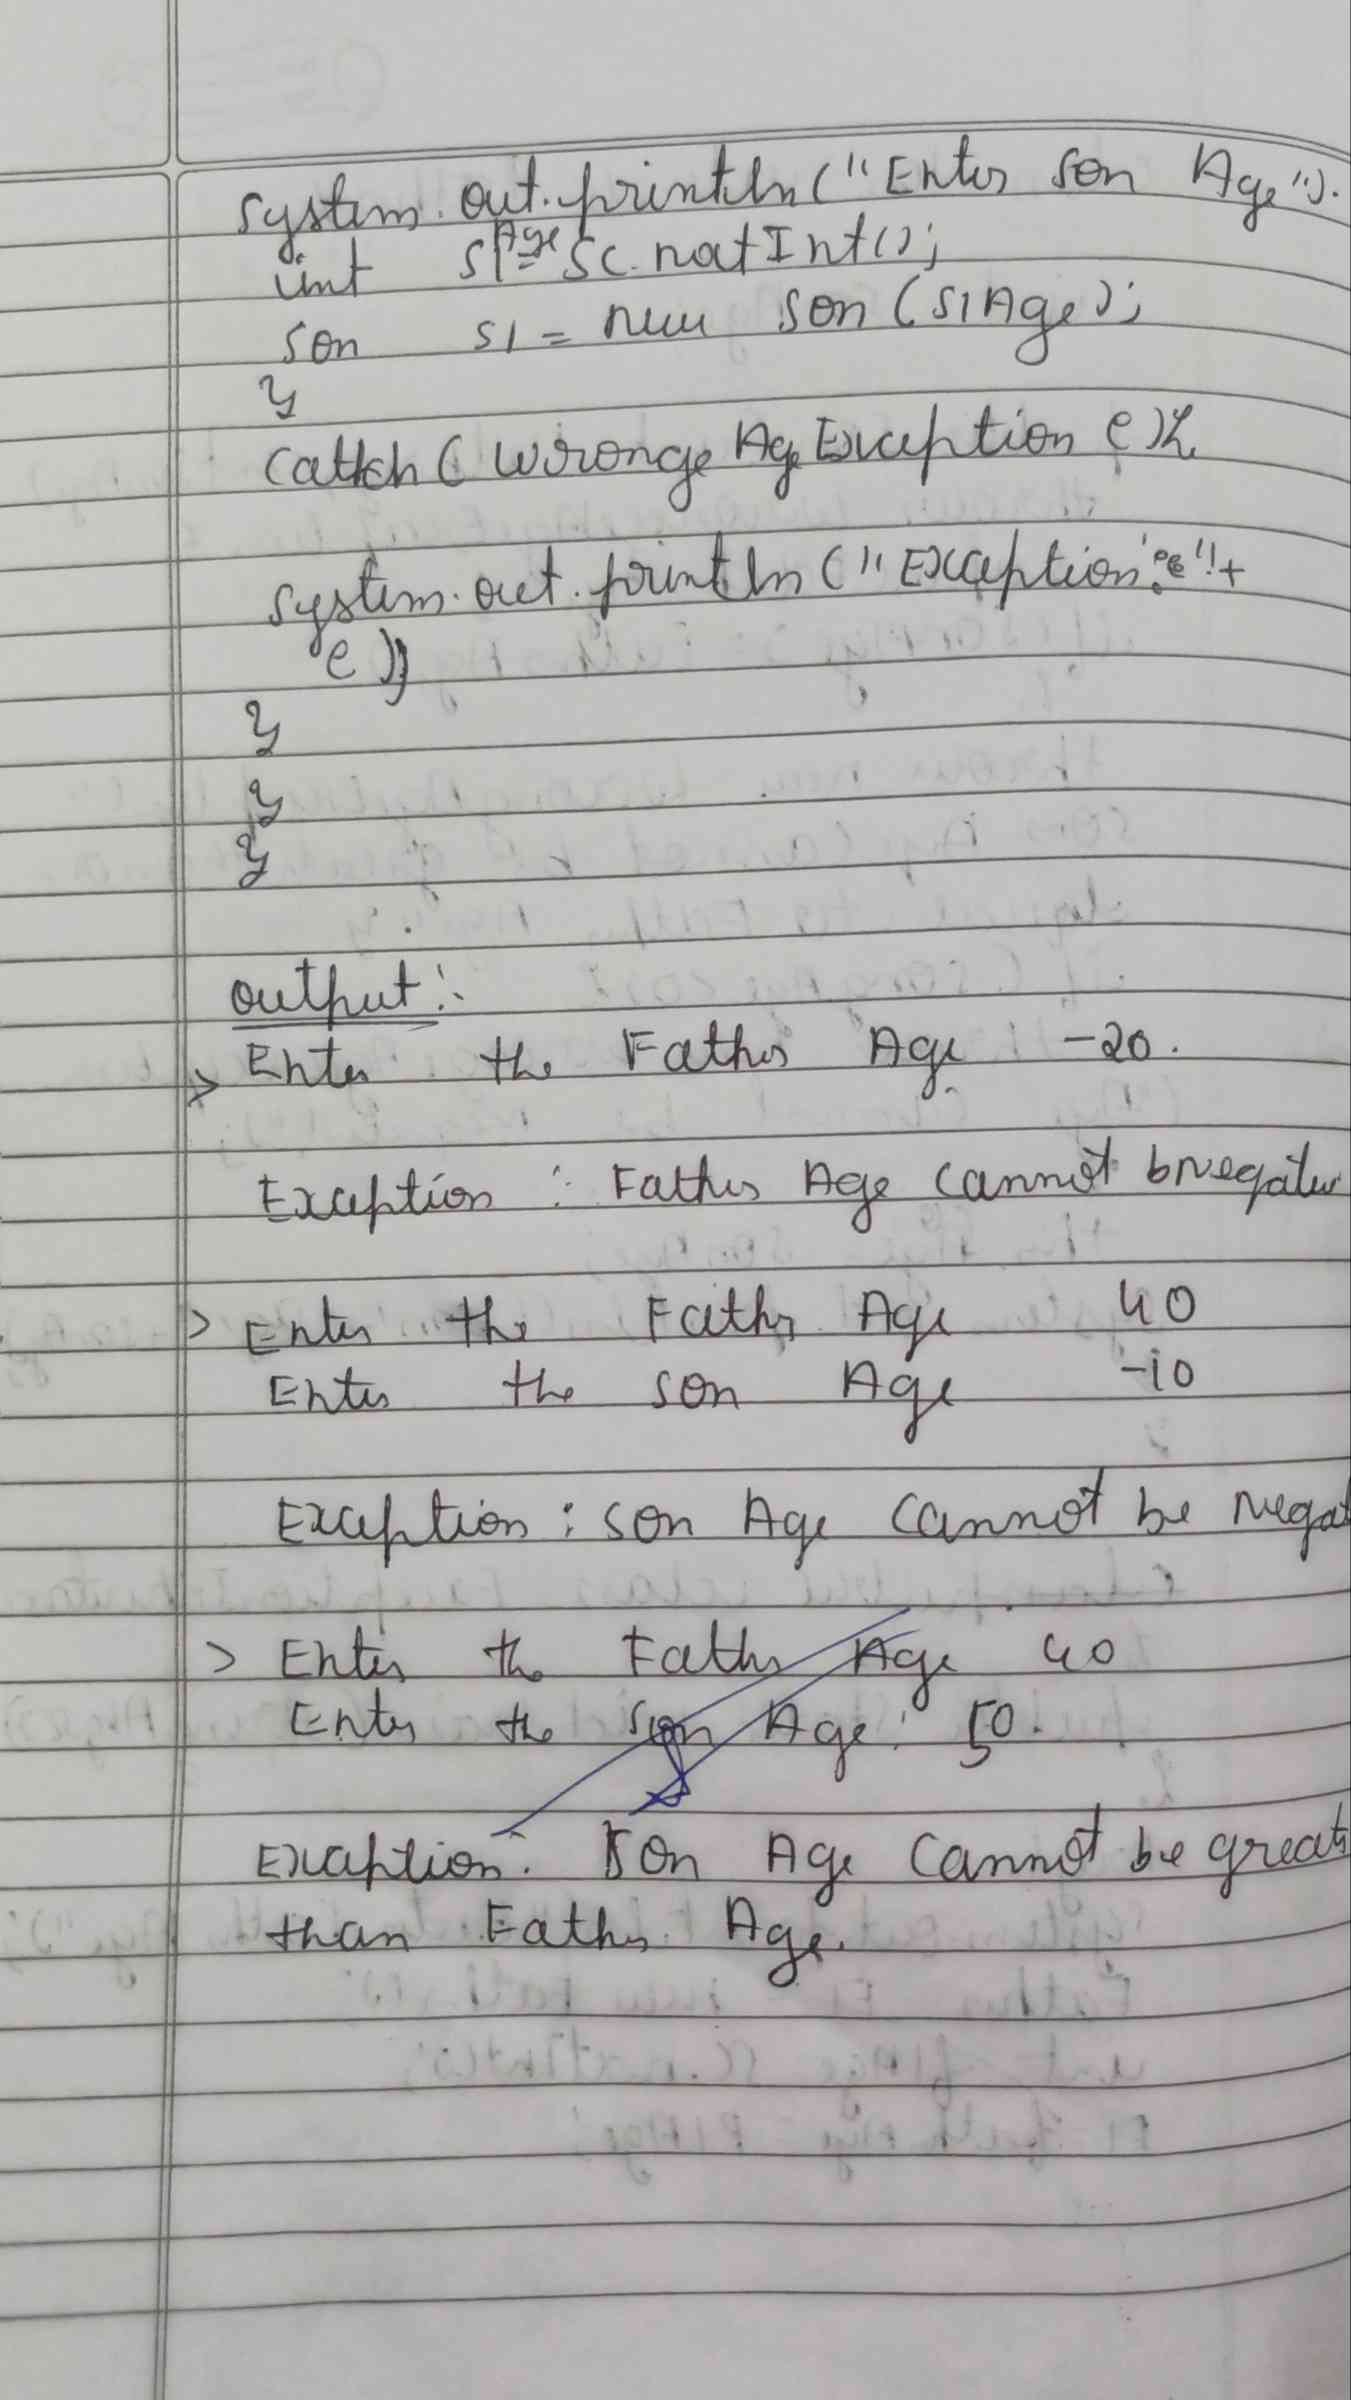 System.out.println("Enter Son Age").
int s1Age = sc.natInt();
son s1 = new son (s1Age);
}
Cattch ( Wronge Age Exception e ){
System.out.println ("Exception: "+
e ));
}
}
}
output:
> Enter the Father Age -20.
Exception : Father Age cannot b negative
> Enter the Father Age 40
Enter the son Age -10
Exception : son Age cannot be negat
> Enter the Father Age 40
Enter the son Age: 50.
Exception: Son Age cannot be great
than Father Age.